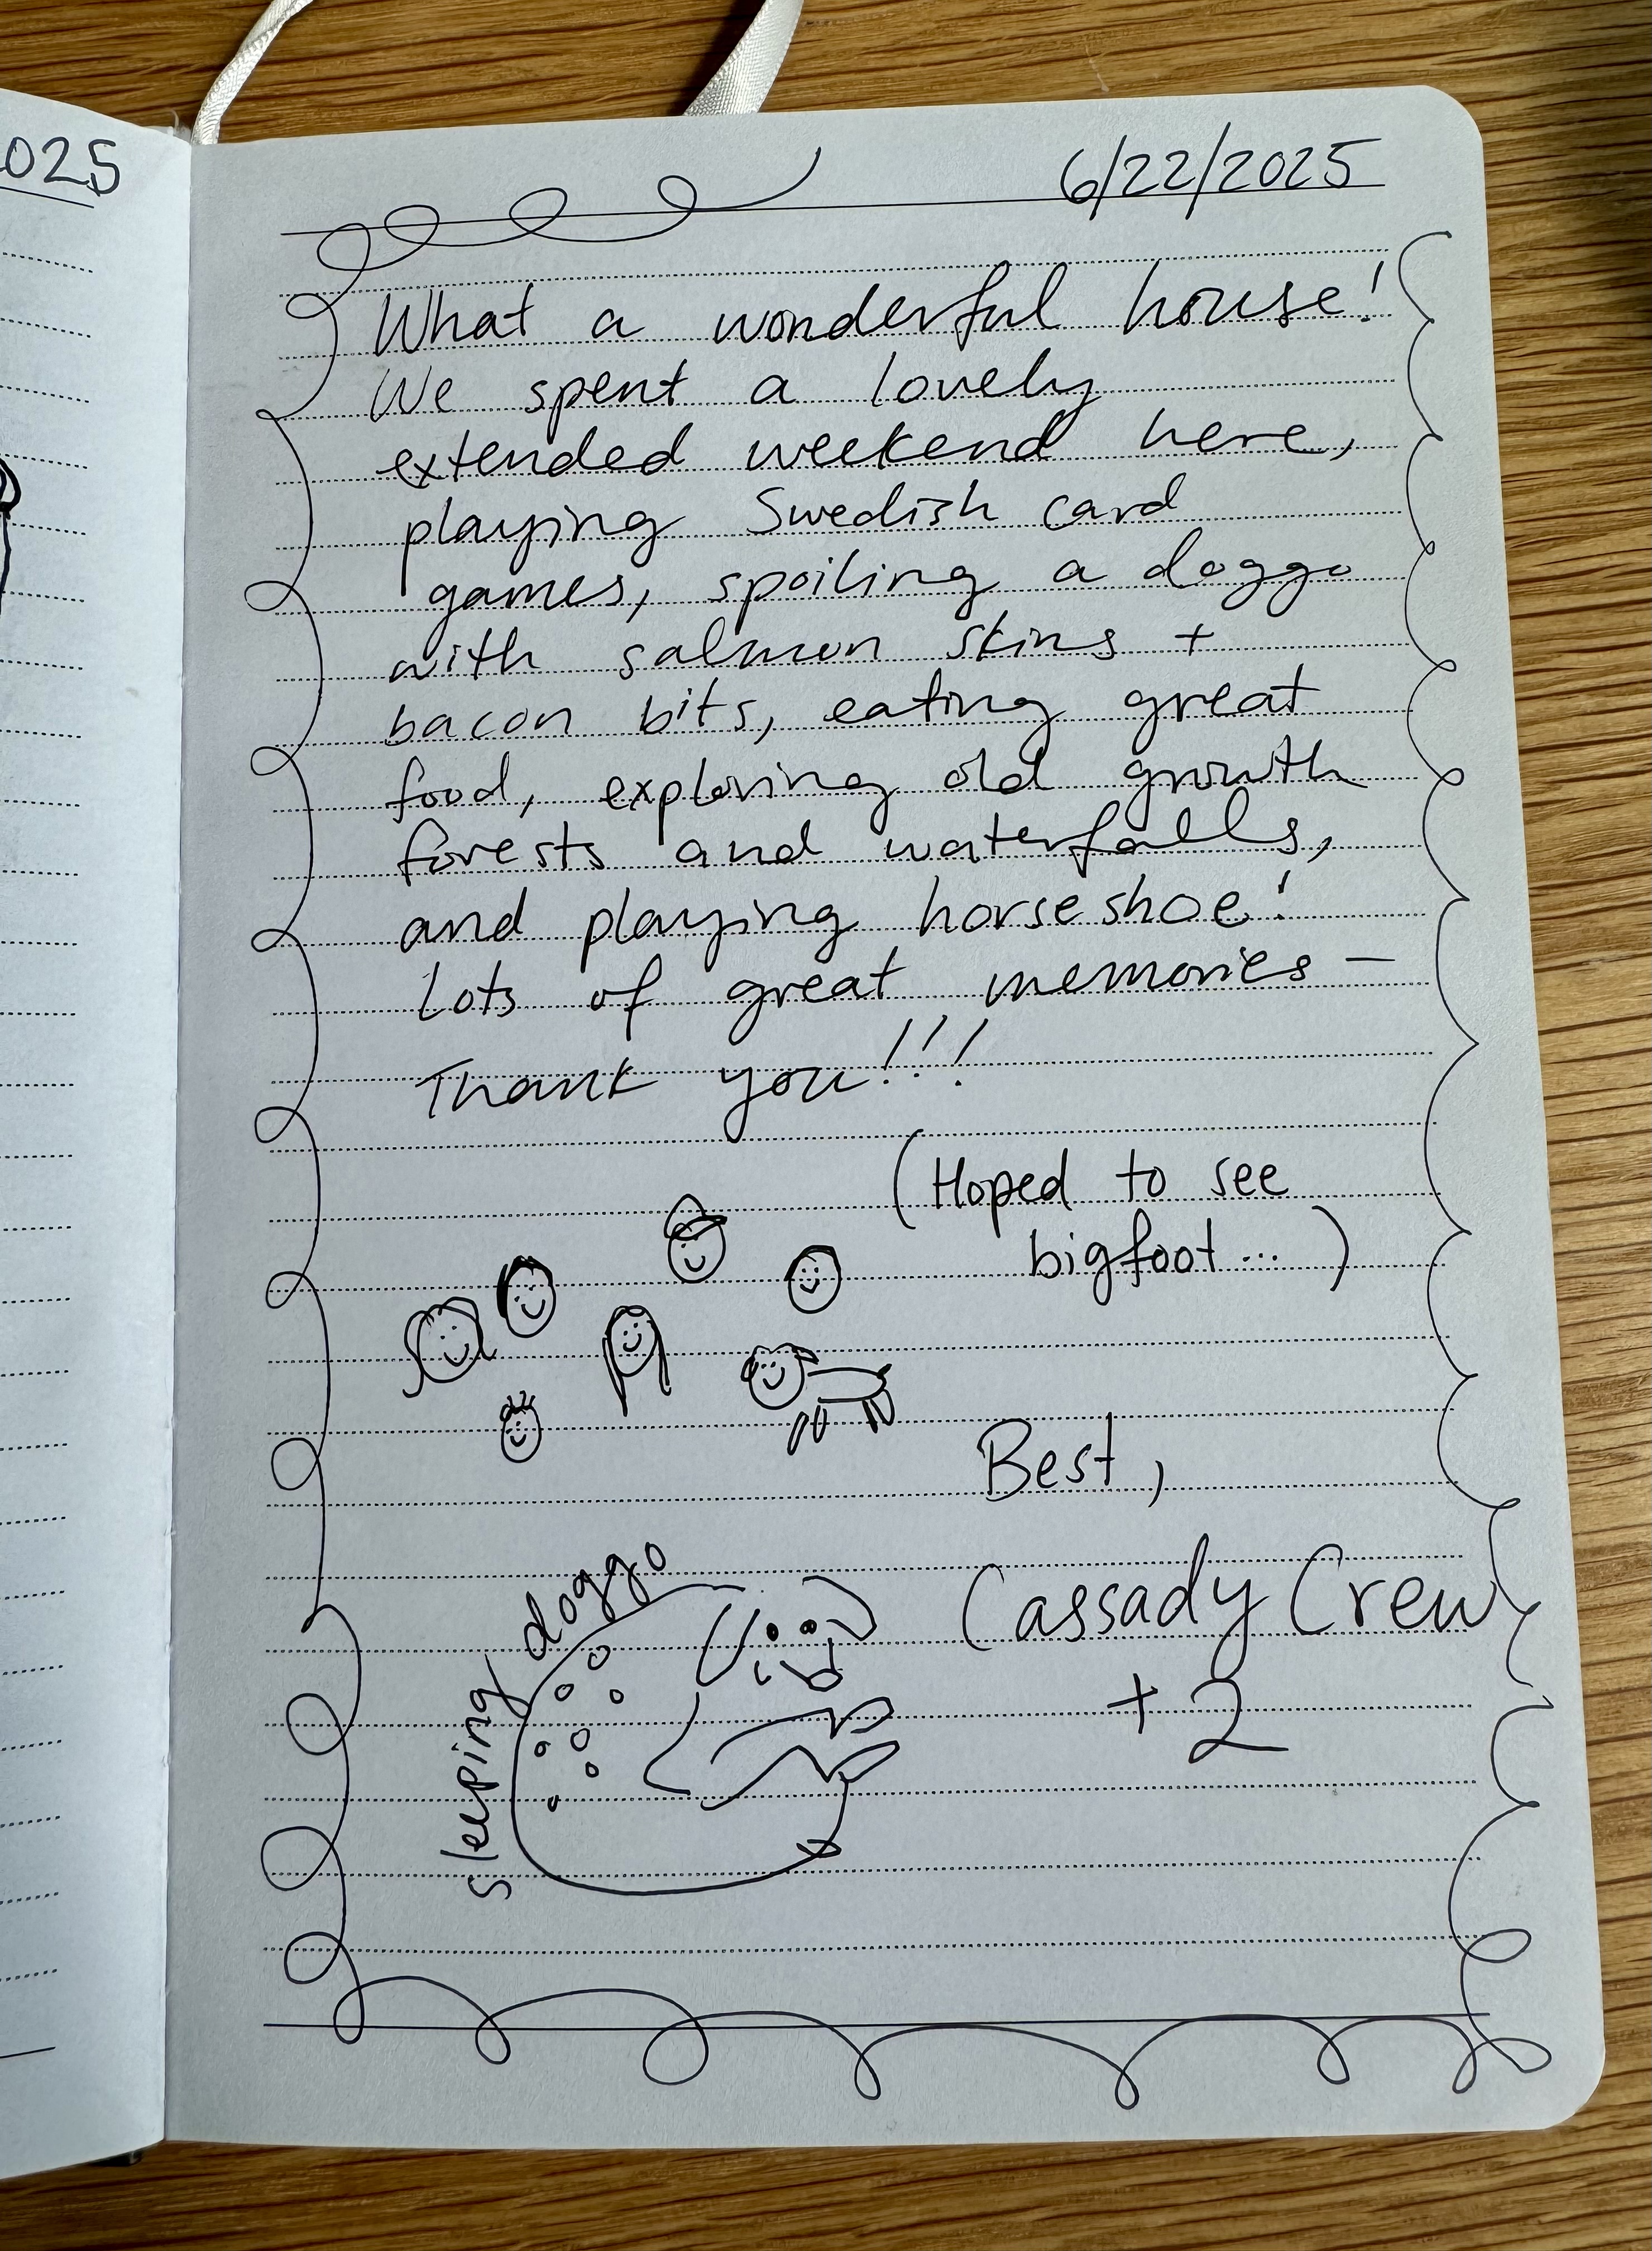 025
6/22/2025
What a wonderful house!
We spent a lovely
extended weekend here,
playing Swedish card
games, spoiling a doggo
with salmon skins +
bacon bits, eating great
food, exploring old growth
forests and waterfalls,
and playing horseshoe!
Lots of great memories —
Thank you!!!
(Hoped to see
bigfoot ... )
Best,
Cassady Crew
+ 2
sleeping doggo